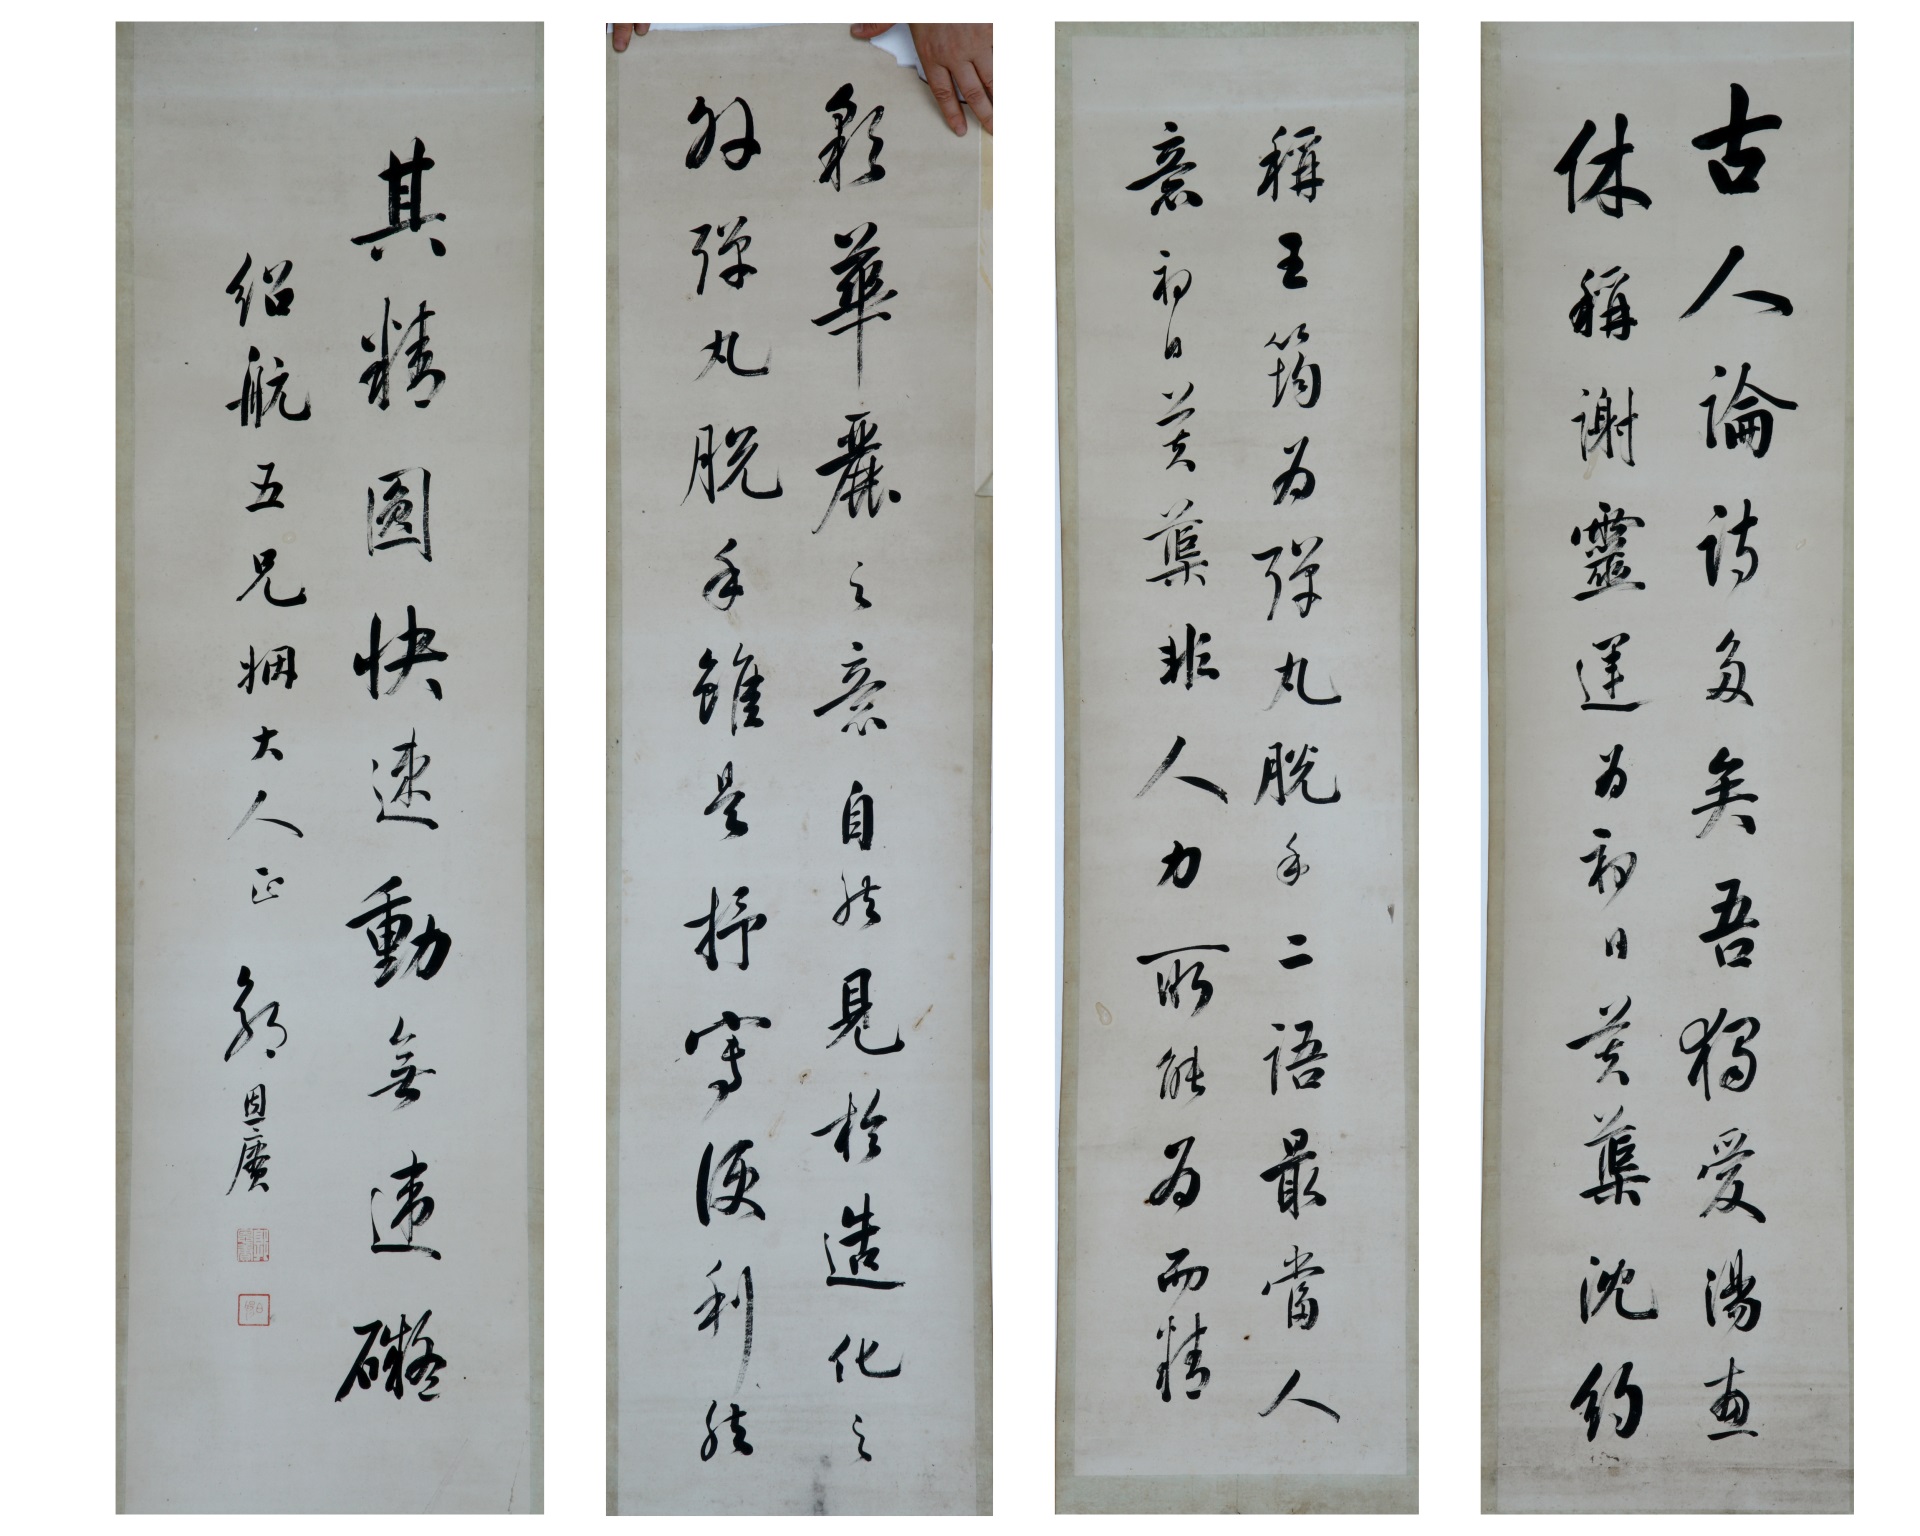 古人論詩多矣吾獨愛湯惠
休稱謝靈運為初日芙蕖沈約
稱王筠為彈丸脫手二語最當人
意初日芙蕖非人力所能為而精
彩華麗之意自然見於造化之
外彈丸脫手雖是抒寫便利然
其精圓快速動無違礙
紹航五兄姻大人正
恩廣